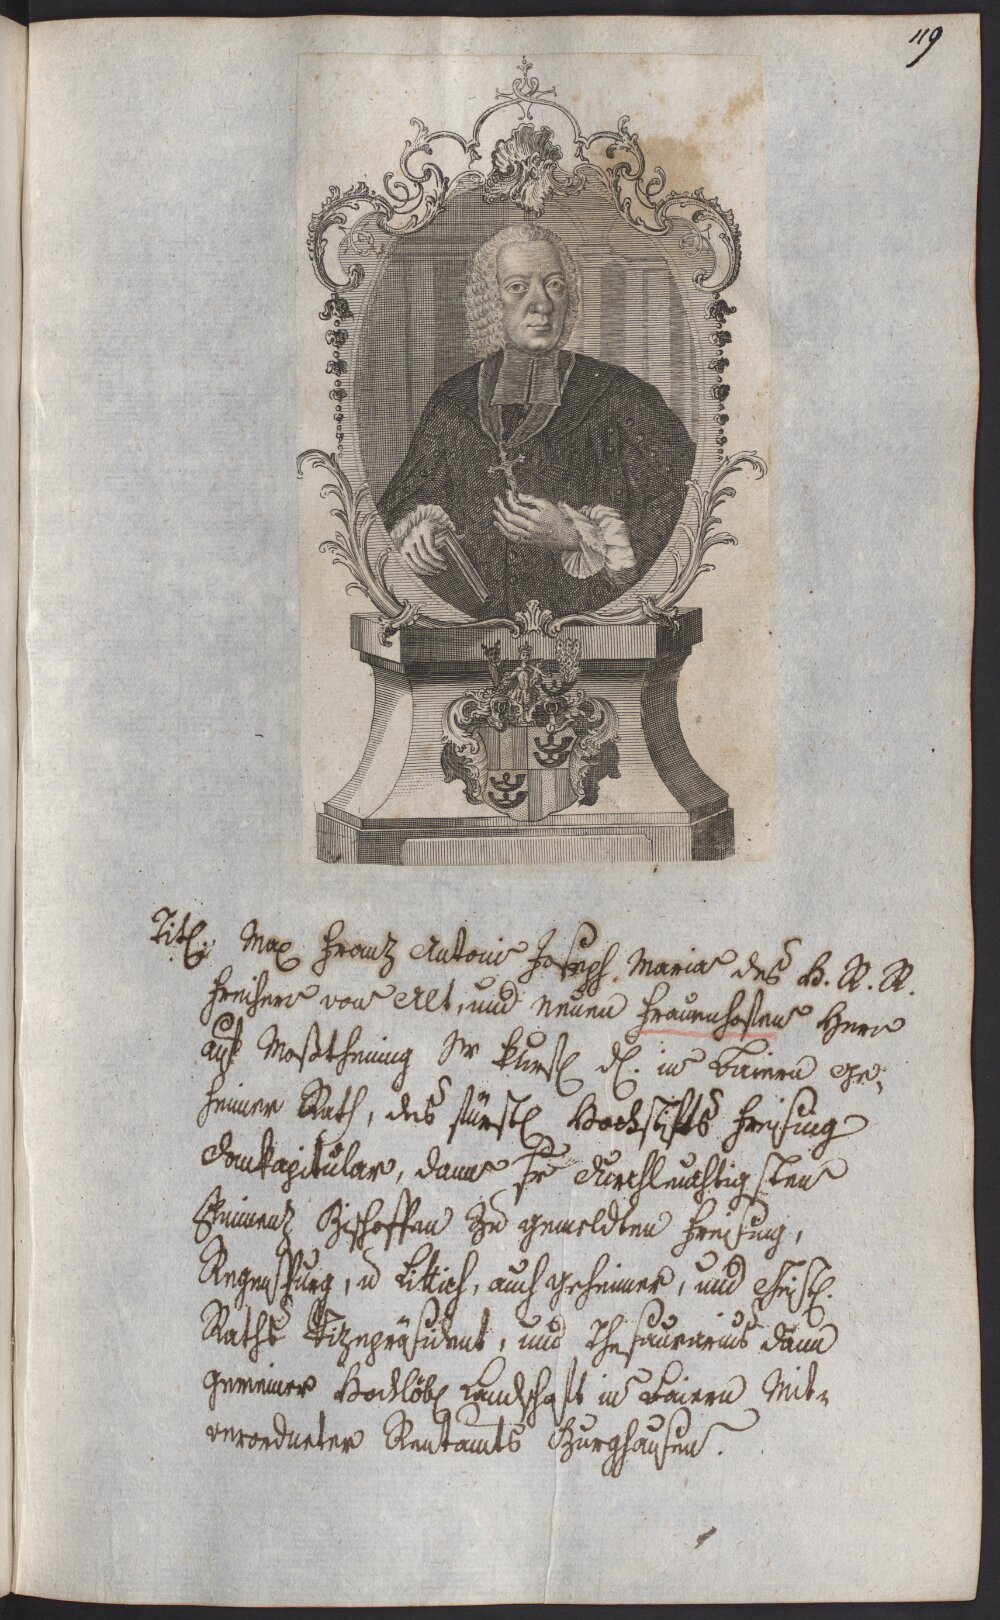 119
Titl: Max Franz Antoni Joseph Maria des H. R. R.
Freiherr von Alt, und neuen Frauenhofen Herr
auf Moßthening Sr Kurfl dl. in Baiern ge-
heimer Rath, des fürstl Hochstifts Freising
Domkapitular, dann Sr Durchleuchtigsten
Eminenz Bischoffen zu gemeldten Freising,
Regenspurg, u Littich, auch geheimer, und Geistl.
Raths Vizepräsident, und Thesaurarius dann
gemeiner Hochlöbl Landschaft in Baiern Mit-
verordneter Rentamts Burghausen.